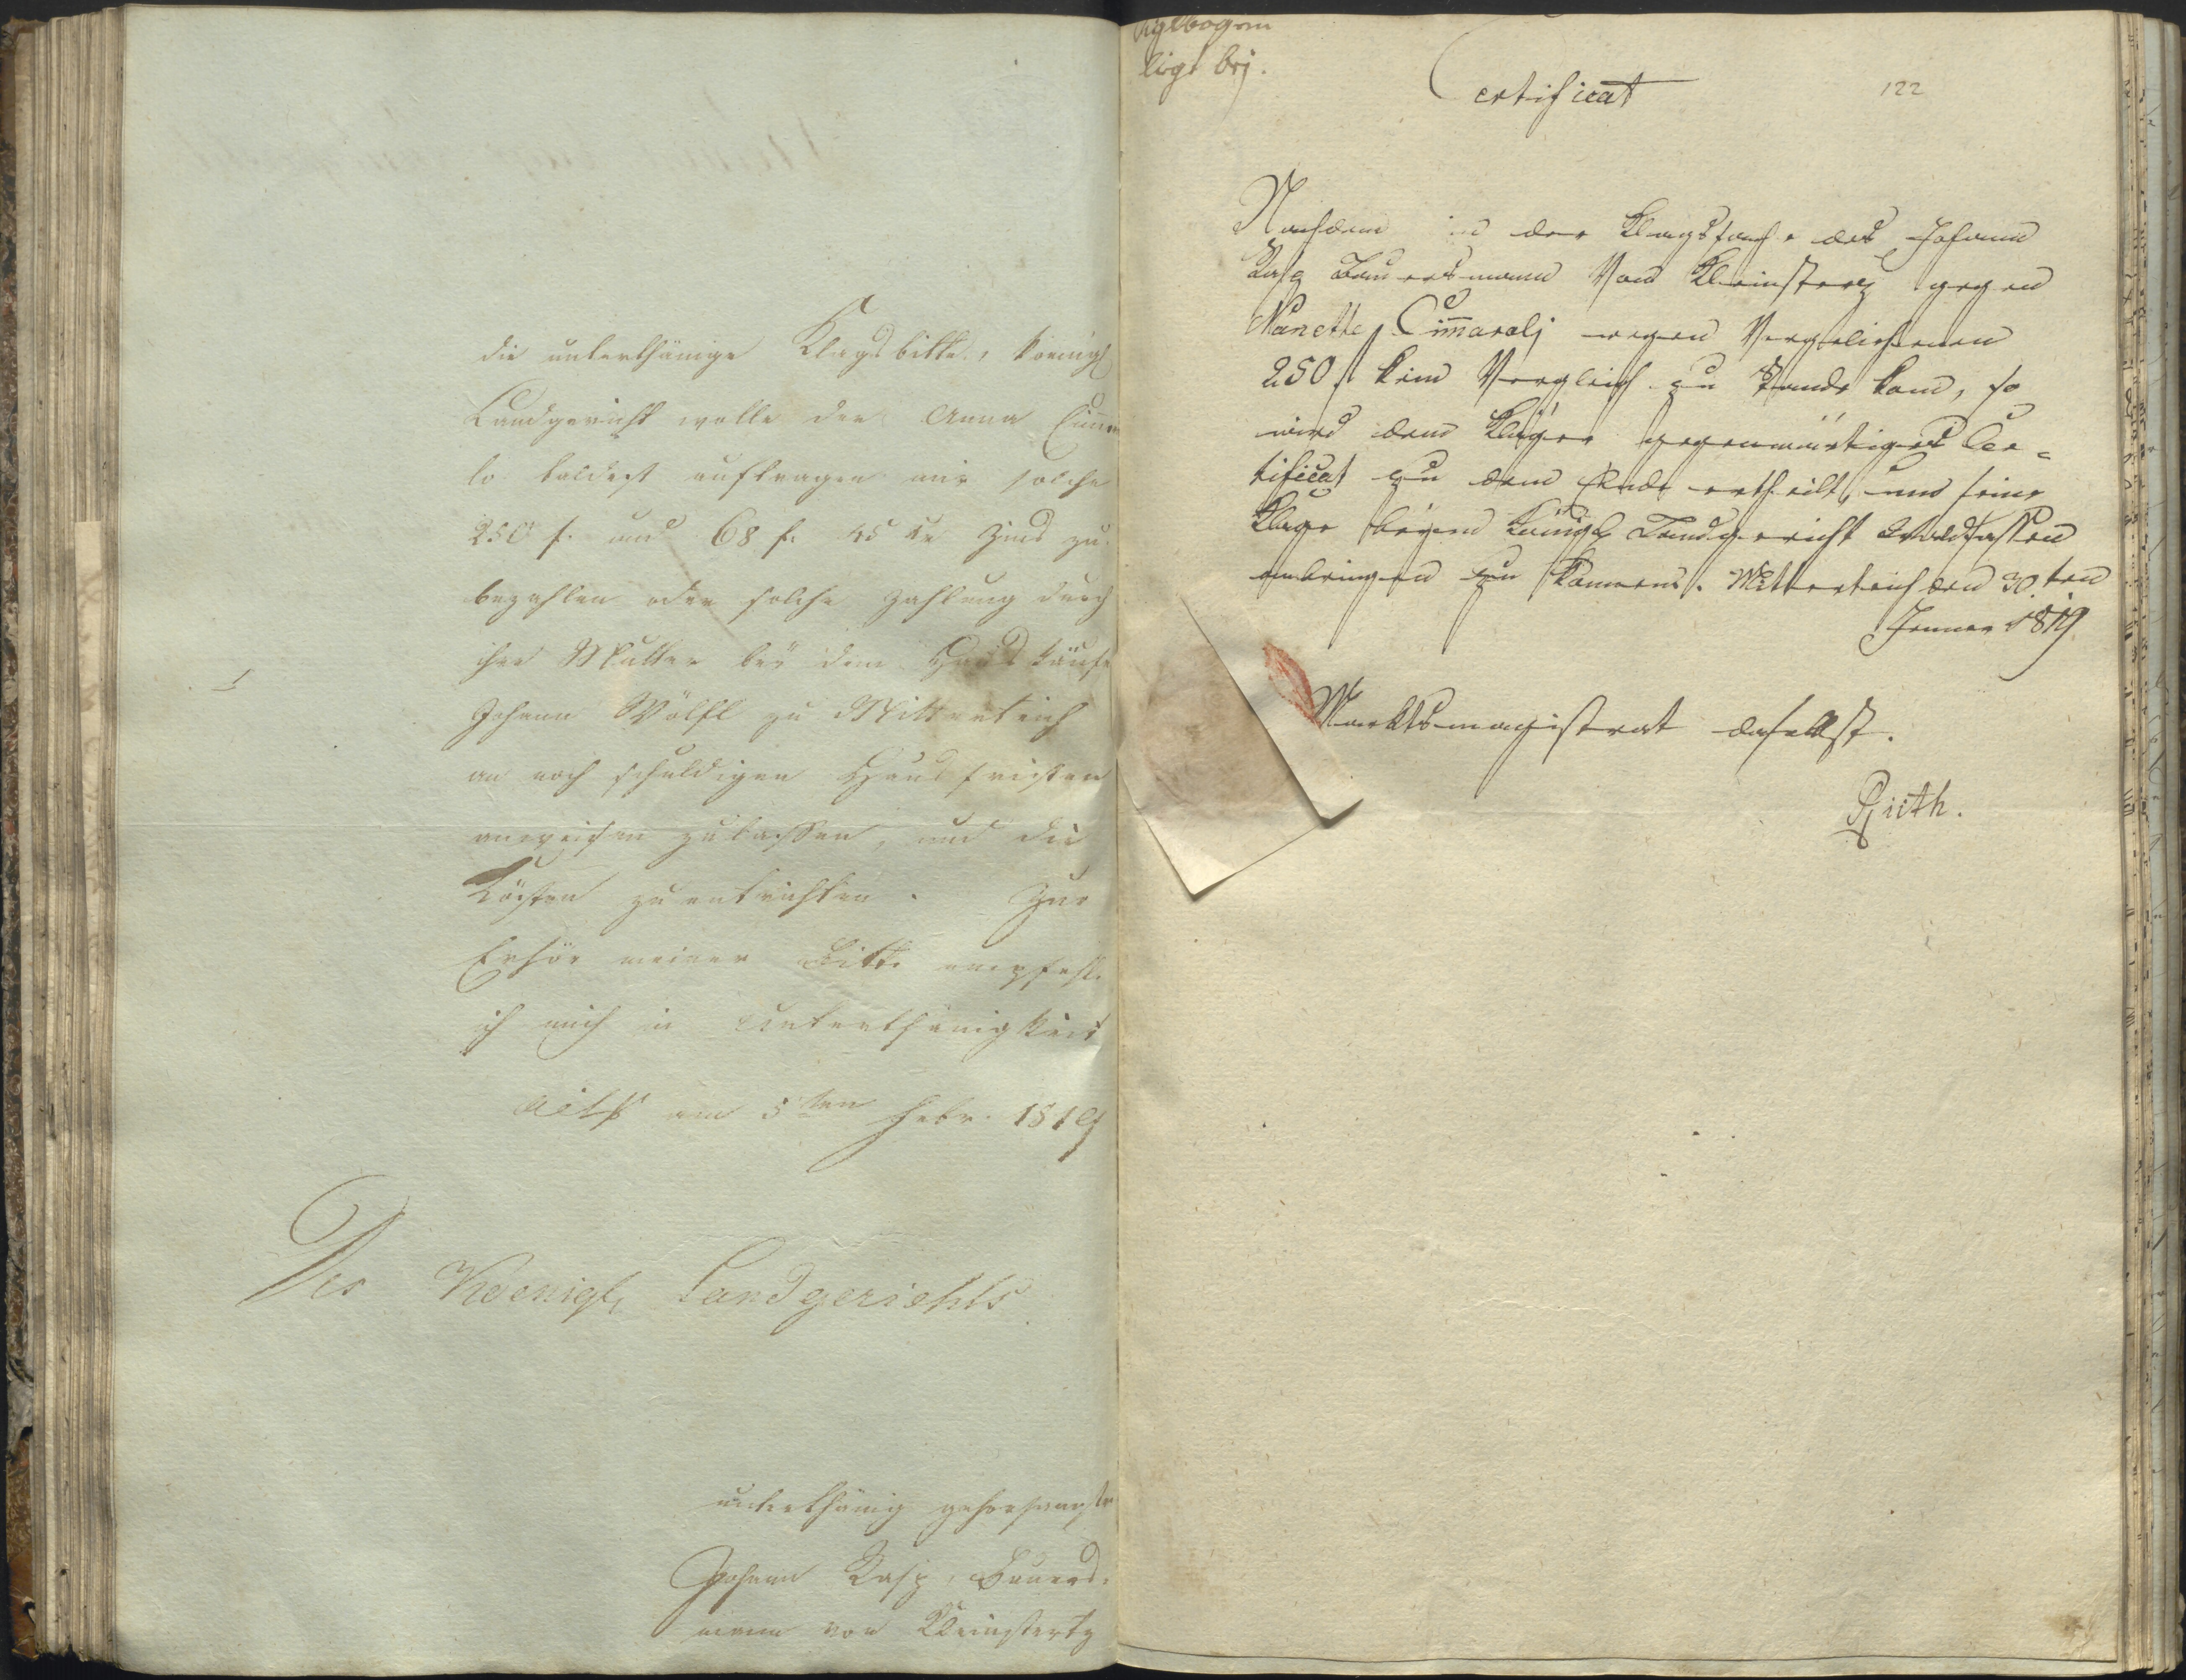 die unterthänige Klagsbitte, koenigl
Landgericht wolle der Anna Cimera
lo baldigst auftragen mir solche
250 f. und 68 f. 45 kr Zins zu
bezahlen oder solche Zahlung durch
ihre Mutter bey dem Hauskäufer
Johann Wölfl zu Mitterteich
an noch schuldigen Hausfristen
anweisen zu lassen, und die
Kösten zu entrichten. Zur
Erhör meiner Bitte empfehle
ich mich in Unterthänigkeit
am 5ten Febr. 1819
Des Koenigl. Landgerichts
unterthänig gehorsamster
Johann Bauers-
mann von Kleinstertz
Siglbogen
liegt bej.
Certificat
122
Nachdem in der Klagssache des Johann
Bauersmann von Kleinsterz gegen
Nanette Cimarolj wegen
250 f kein Vergleich zu Stande kam, so
wird dem Kläger gegenwärtiges Cer=
tificat zu dem Ende ertheilt, um seine
Klage beym königl Landgericht Waldsassen
anbringen zu können. Mitterteich den 30.ten
Jenner 1819.
Marktsmagistrat daselbst.